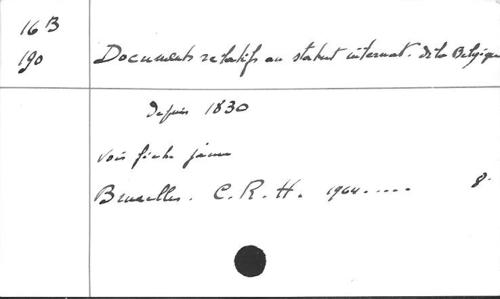 16 B
190
Documents relatifs au statut internat. de la Belgique
depuis 1830
voir fiche jaune
Bruxelles. C. R. H. 1964..... 8°